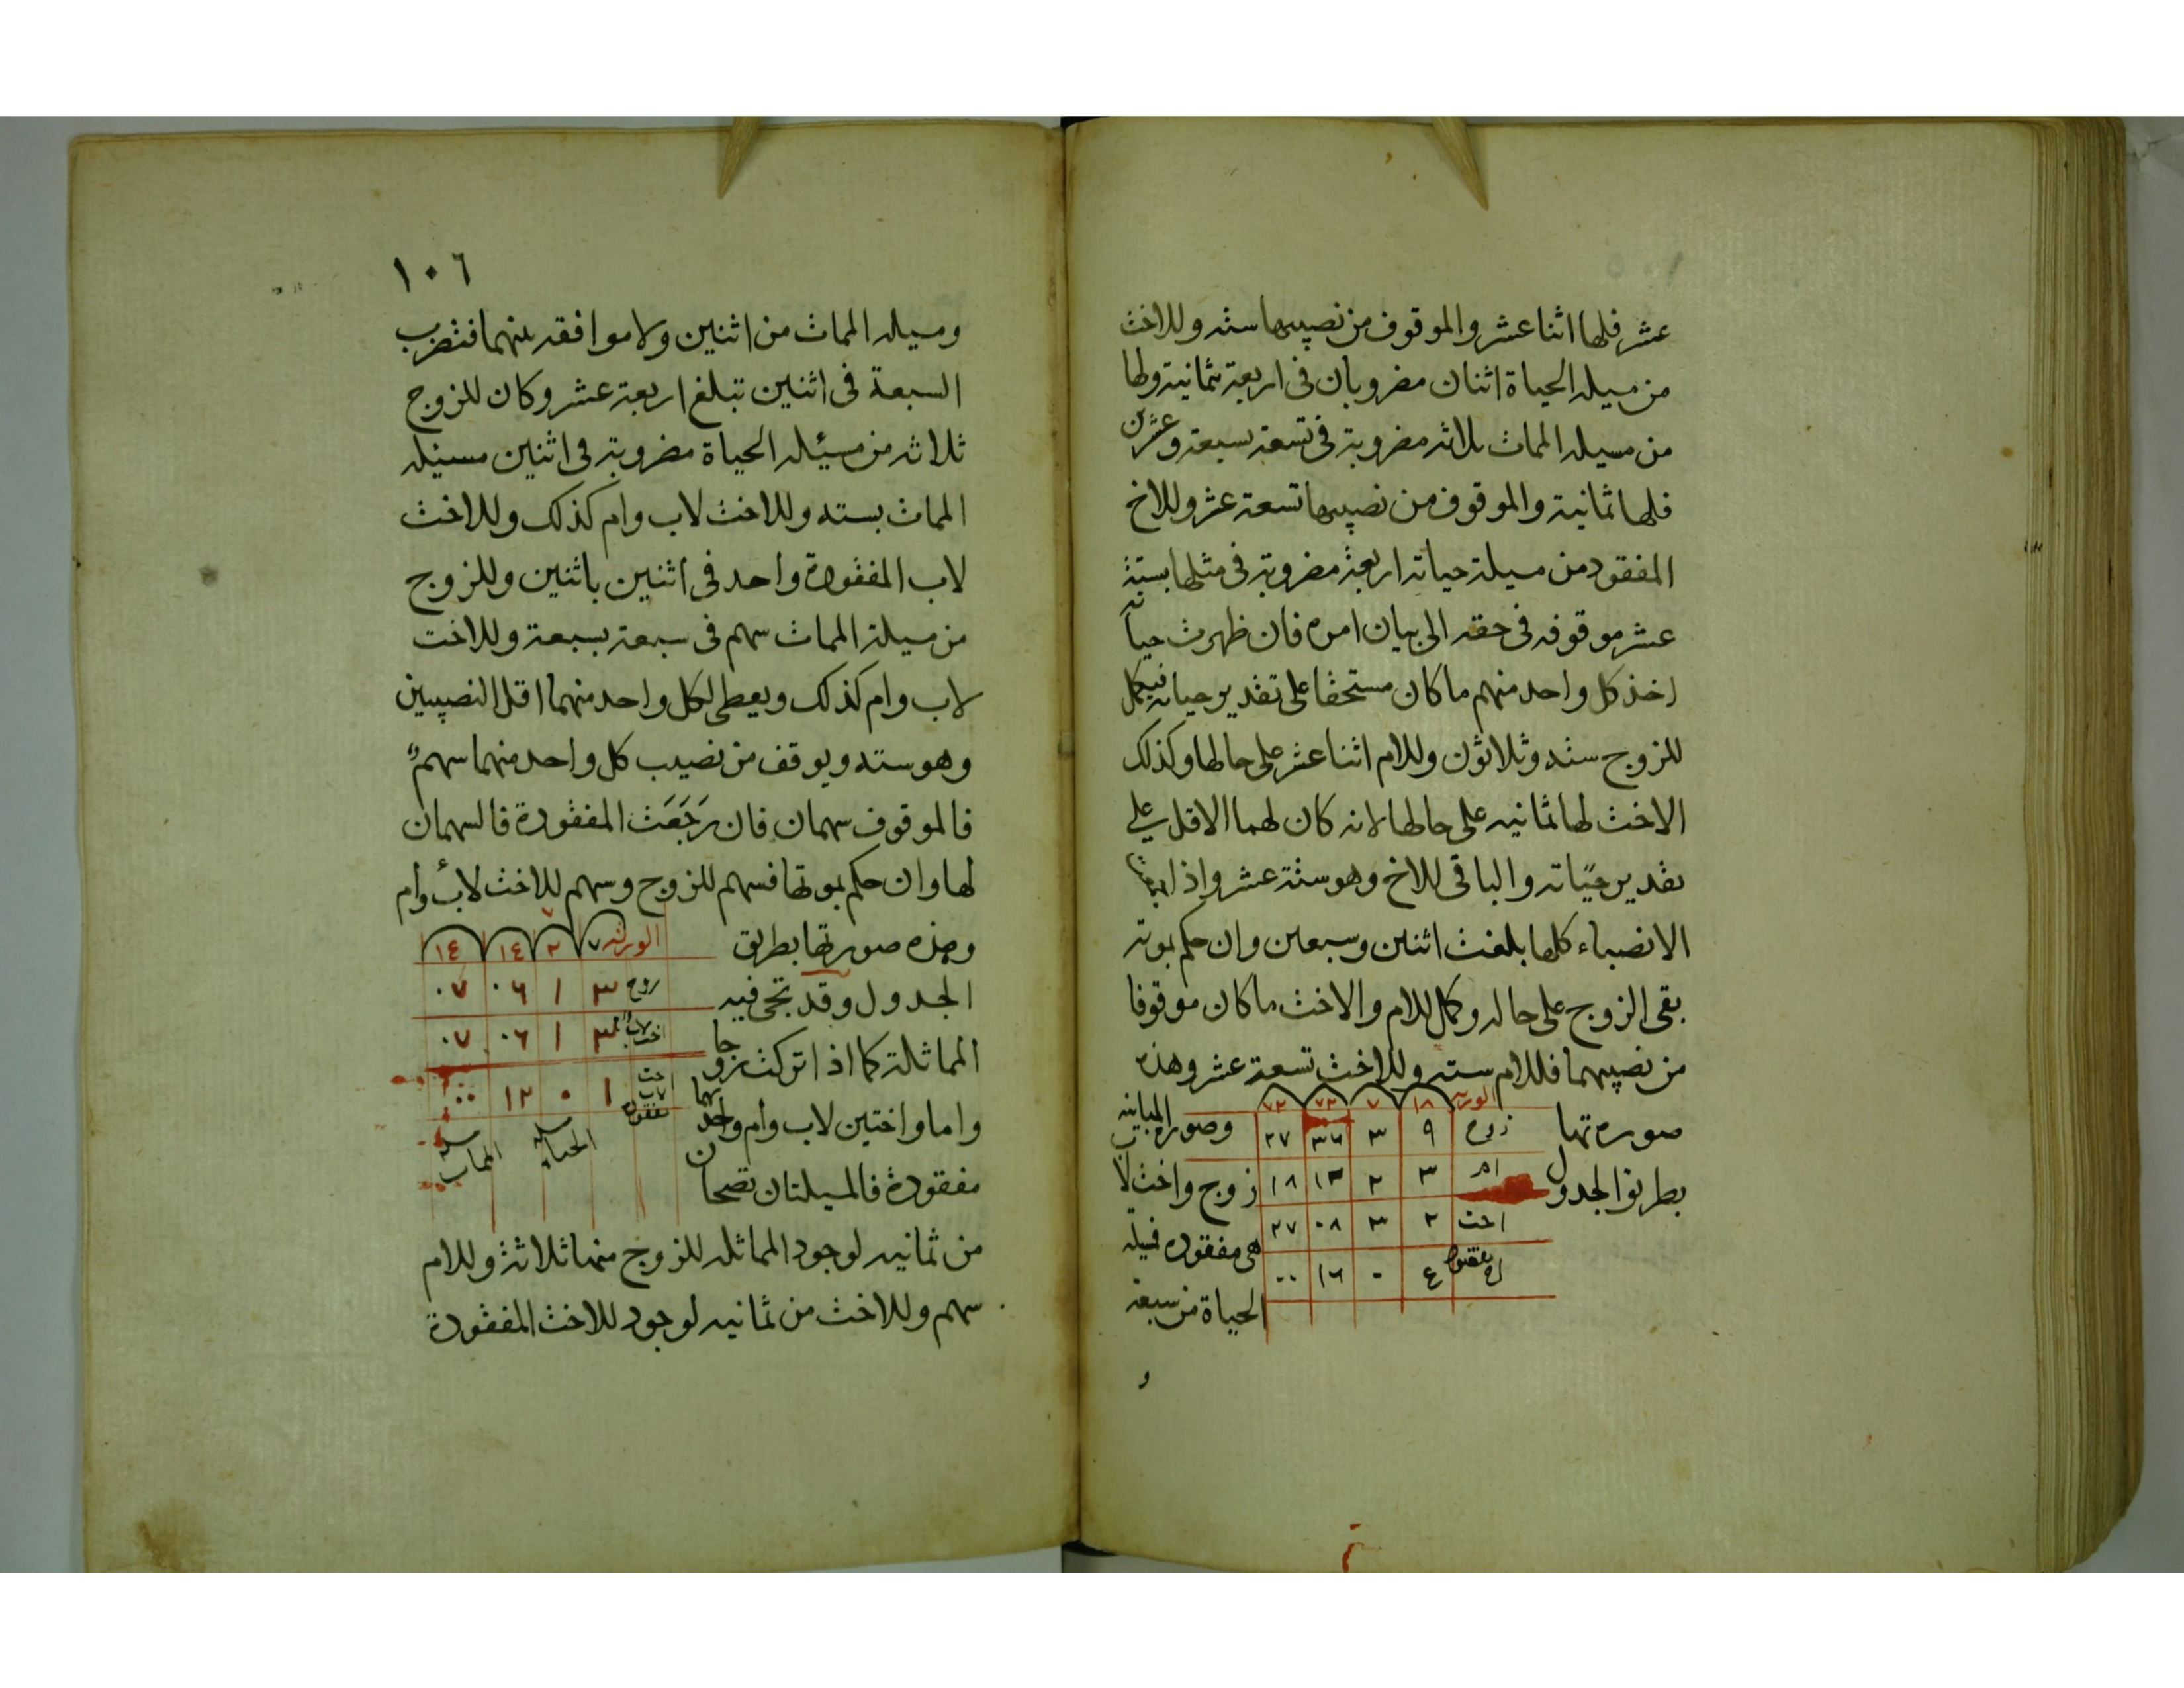 عشر فلها اثنا عشر والموقوف من نصيبها ستة وللاخت
من مسيلة الحياة اثنان مضروبان فى اربعة بثمانية ولها
من مسيلة الممات ثلاثة مضروبة فى تسعة بسبعة وعشرين
فلها ثمانية والموقوف من نصيبها تسعة عشر وللاخ
المفقود من مسيلة حياته اربعة مضروبة فى مثلها بستة
عشر موقوفه فى حقه الى بيان امره فان ظهرت حياته
اخذ كل واحد منهم ما كان مستحقا على تقدير حياته فيكمل
للزوج ستة وثلاثون وللام اثنا عشر على حالها وكذلك
الاخت لها ثمانيه على حالها لانه كان لهما الاقل على
تقدير حياته والباقى للاخ وهو ستة عشر واذا
الانصباء كلها بلغت اثنين وسبعين وان حكم بموته
بقى الزوج على حاله وكمل للام والاخت ما كان موقوفا
من نصيبهما فللام سته وللاخت تسعة عشر وهذه
صورتها
بطريق الجدول
الورثه ١٨ ٧ ٧٢ ٧٢
زوج ٩ ٣ ٣٦ ٢٧
ام ٣ ٢ ١٢ ١٨
اخت ٢ ٣ ٠٨ ٢٧
اخ مفقود ٤ ٠ ١٦ ٠٠
وصورة المباينه
زوج واخت لاب
هى مفقوده فمسيلة
الحياة من سبعة
و
١٠٦
ومسيلة الممات من اثنين ولا موافقه بينهما فتضرب
السبعة فى اثنين تبلغ اربعة عشر وكان للزوج
ثلاثة من مسئلة الحياة مضروبة فى اثنين مسئلة
الممات بسته وللاخت لاب وام كذلك وللاخت
لاب المفقودة واحد فى اثنين باثنين وللزوج
من مسيلة الممات سهم فى سبعة بسبعة وللاخت
لاب وام كذلك ويعطى لكل واحد منهما اقل النصيبين
وهو سته ويوقف من نصيب كل واحد منهما سهم
فالموقوف سهمان فان رَجَعَت المفقودة فالسهمان
لها وان حكم بموتها فسهم للزوج وسهم للاخت لاب وام
وهذه صورتها بطريق
الجدول وقد تجى فيه
المماثلة كما اذا تركت زوجا
واما واختين لاب وام واحدهما
مفقودة فالمسيلتان تصحان
الورثه ٧ ٢ ١٤ ١٤
زوج ٣ ١ ٠٦ ٠٧
اخت لاب وام ٣ ١ ٠٦ ٠٧
اخت لاب مفقوده ١ ٠ ١٢ ٠٠
مسيلة الحياة مسيلة الممات
من ثمانيه لوجود المماثله للزوج منها ثلاثة وللام
سهم وللاخت من ثمانيه لوجود للاخت المفقودة